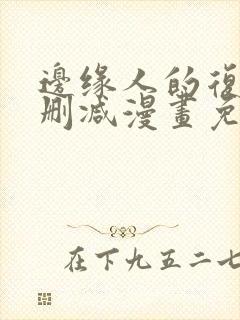 邊缘人的復
删减漫畫免
在下九五二七